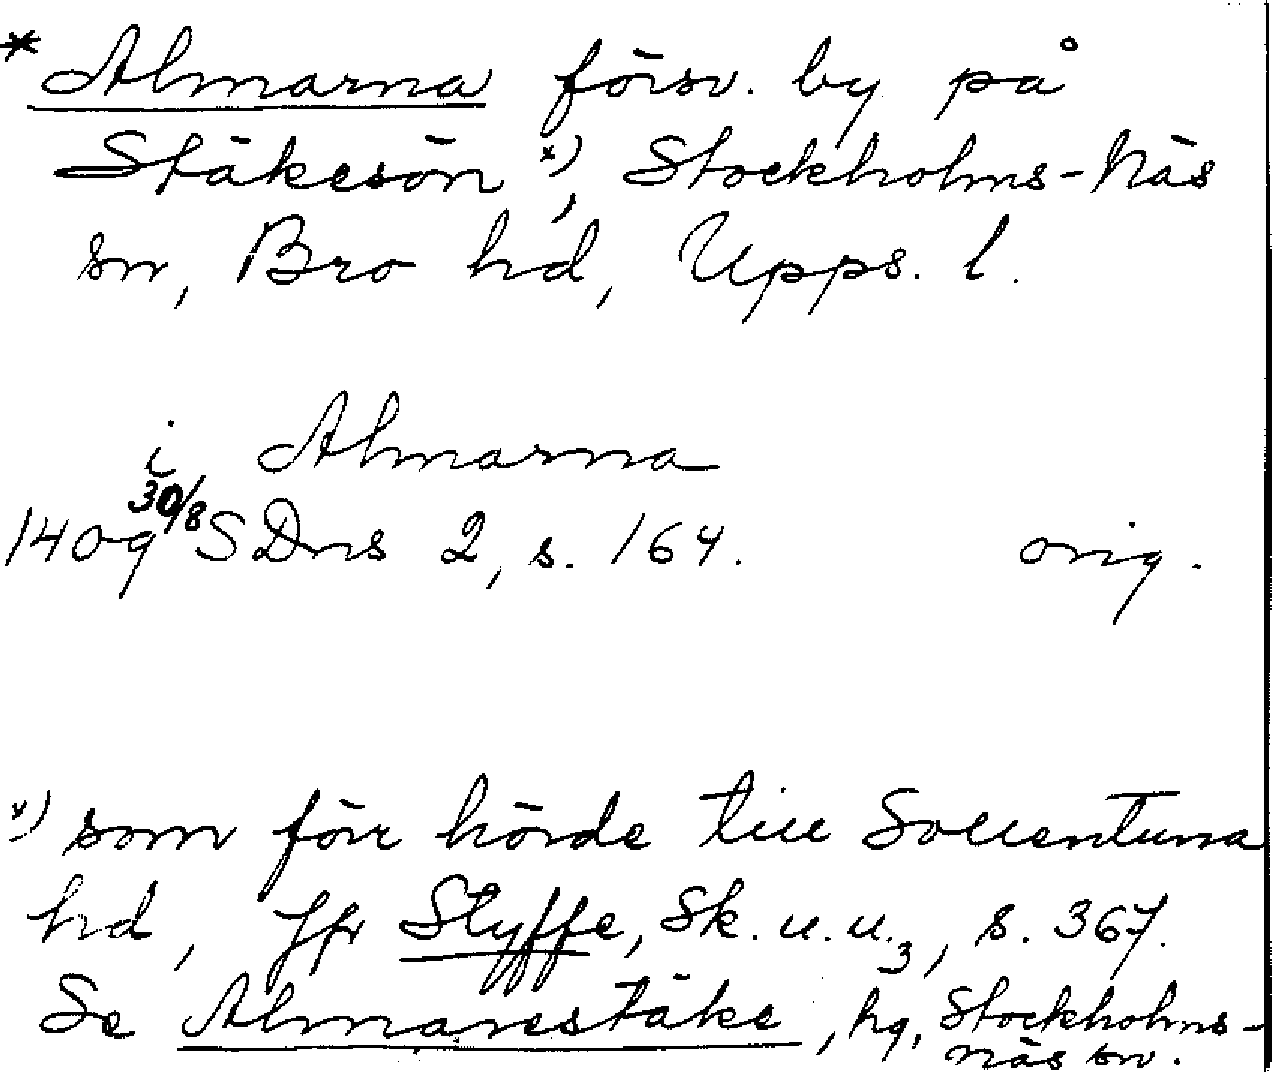 * Almarna försv. by på
Stäkesön x), Stockholms-Näs
sn, Bro hd, Upps. l.
i Almarna
1409 30/8 SDns 2, s. 164. orig.
x) som förr hörde till Sollentuna
hd, Jfr Styffe, Sk. u. u. 3, s. 367.
Se Almarestäke, hg, Stockholms-
näs sn.